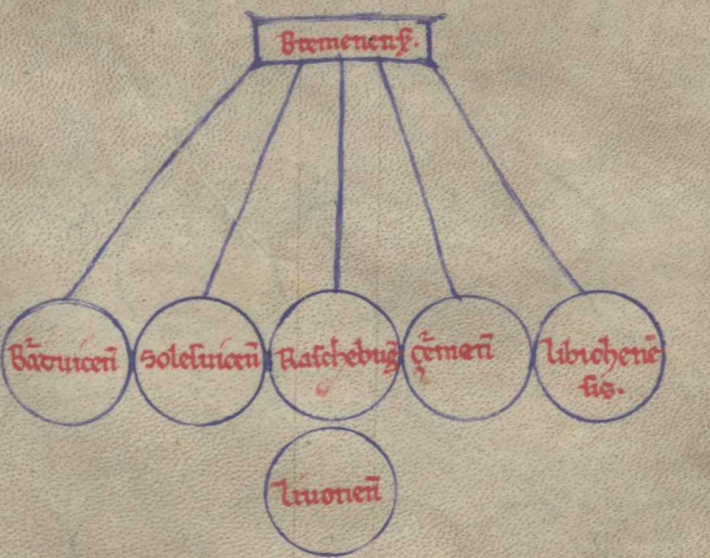 Bremenens̄.
Bāduicen̄
Solesuicen̄
Raschebuḡ
Çēmen̄
Libichenē
sis.
Liuonen̄